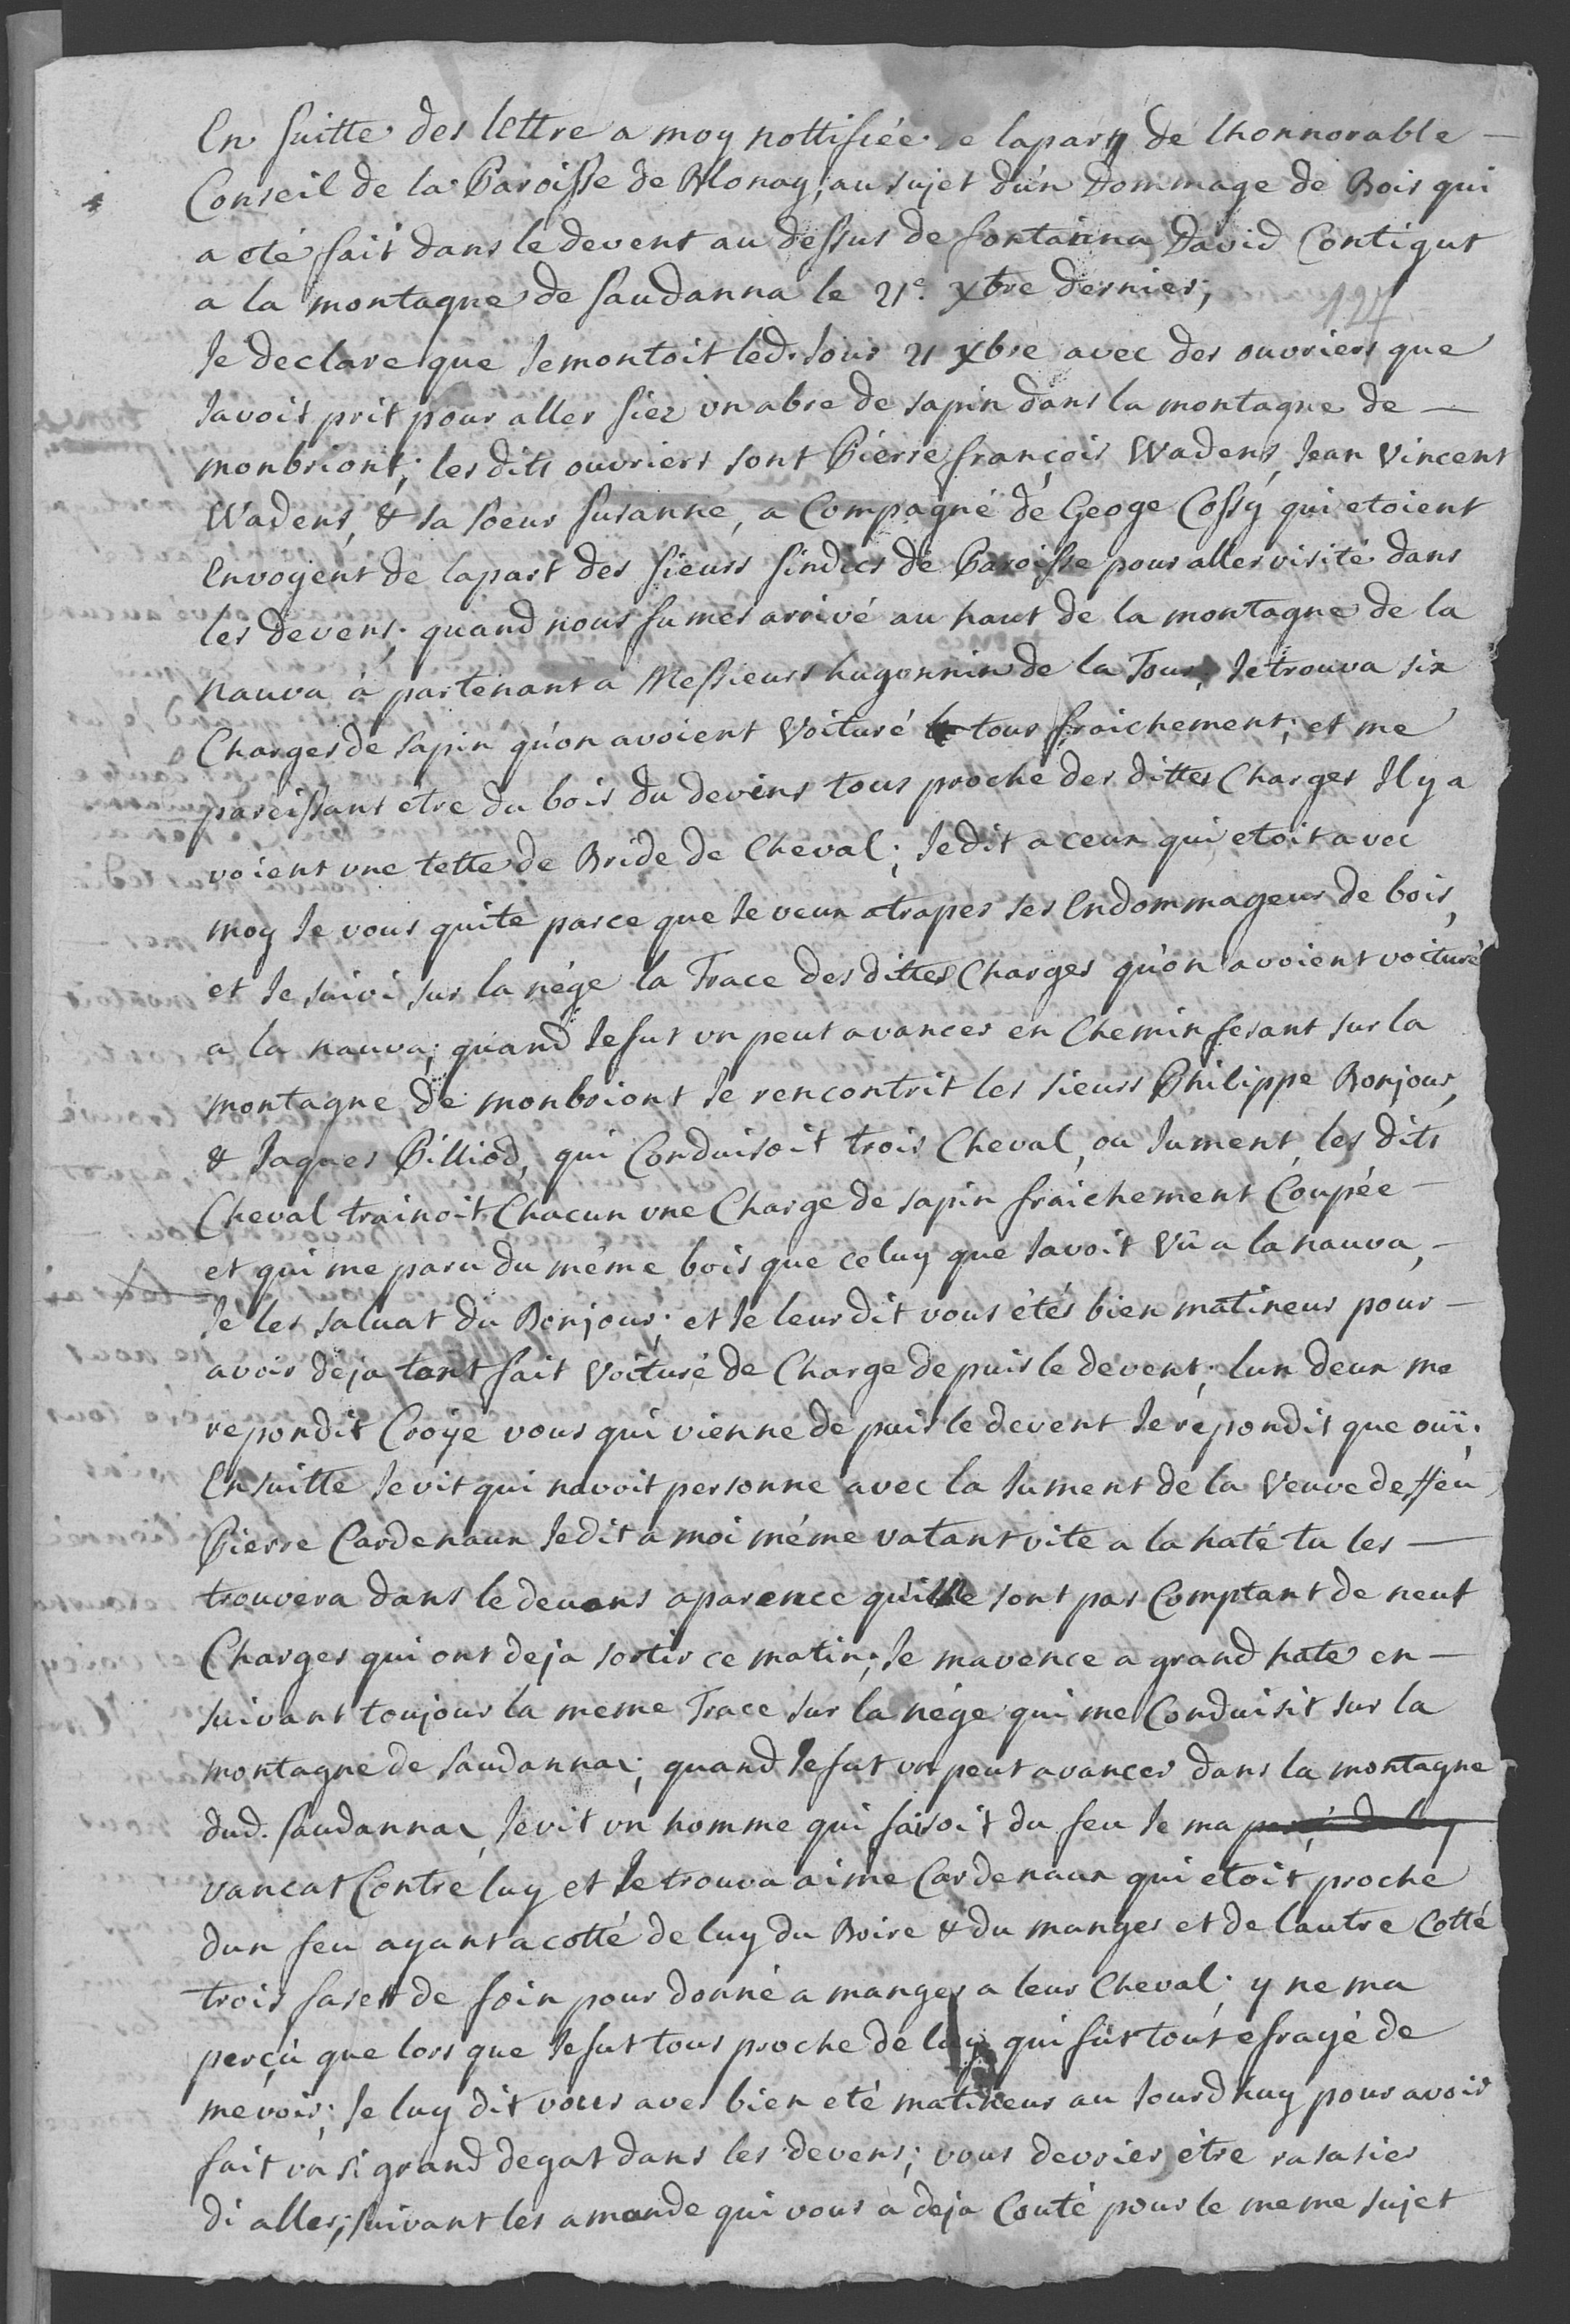 En suitte des lettre a moy nottifiée de la part de lhonnorable —
Conseil de la Paroisse de Blonay, au sujet du'n Dommage de Bois qui
a eté fait dans le devent au dessus de fontanna David Contigut
a la montagne de saudanna le 21e. Xbre dernier;
127
Je declare que Je montoit led. Jour 21 Xbre avec des ouvriers que
Javoit prit pour aller siez un abre de sapin dans la montagne de —
monbriont; les dits ouvriers sont Piérre françois Wadens, Jean Vincent
Wadens, & sa soeur susanne, a Compagné de Geoge Cossy qui etoient
Envoyent de la part des sieurs sindics de Paroisse pour aller visité dans
les devens; quand nous fumes arrivé au haut de la montagne de la
Nauva a partenant a Messieurs hugonnin de la Tour, Je trouva six
Charges de sapin qu'on avoient Voituré tour fraichement; et me
pareissant etre du bois du devens tous proche des dittes Charges Il y a
voient une tette de Bride de Cheval; Je dit a ceux qui etoit avec
moy Je vous quite parce que Je veux atraper ses Endommageur de bois,
et Je suivi sur la nége la Trace des dittes Charges qu'on avoient voituré
a la nauva; quand Je fut un peut avancer en Chemin fesant sur la
montagne de monbriont Je rencontrit les sieurs Philippe Bonjour,
& Jaques Pilliod, qui Conduisoit trois Cheval, ou Jument, les dits
Cheval trainoit Chacun une Charge de sapin fraichement Coupée —
et qui me paru du méme bois que celuy que Javoit Vû a la nauva, —
Je les saluat du Bonjour; et Je leur dit vous étés bien matineur pour —
avoir déja tant fait Voituré de Charge depuis le devent; lun deux me
repondit Croÿe vous qui vienne de puis le devent Je répondit que ouï.
Ensuitte Je vit qui navoit personne avec la Jument de la Veuve de ffeu
Pierre Cardenaux Je dit a moi méme vatant vite a la haté tu les —
trouvera dans le devans aparence quille sont pas Comptant de neuf
Charges qui ont deja sortir ce matin; Je mavence a grand hate en —
suivant toujour la meme Trace sur la nége qui me Conduisit sur la
montagne de saudannaz; quand Je fut un peut avancer dans la montagne
dud. saudannaz Je vit un homme qui faisoit du feu Je ma perçu de luy
vancat Contre luy et Je trouva aime Cardenaux qui etoit proche
dun feu ayant a cotté de luy du Boire & du manger et de lautre Cotté
trois faset de foin pour donné a manger a leur Cheval; y ne ma
perçu que lors que Je fut tous proche de luy qui fut tout efrayé de
me voir; Je luy dit vous aves bien eté matineur au Jourdhuy pour avoir
fait un si grand degat dans les devens; vous devries étre rasasier
di aller; suivant les amande qui vous a deja Couté pour le meme sujet